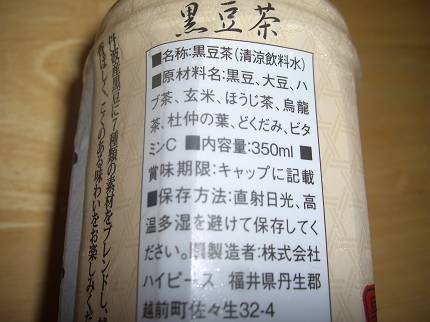 黒豆茶
■名称:黒豆茶(清涼飲料水)
■原材料名:黒豆、大豆、ハ
ブ茶、玄米、ほうじ茶、烏龍
茶、杜仲の葉、どくだみ、ビタ
ミンC ■内容量:350ml ■
賞味期限:キャップに記載
■保存方法:直射日光、高
温多湿を避けて保存してく
ださい。■製造者:株式会社
ハイピース 福井県丹生郡
越前町佐々生32-4
丹波産黒豆に7種類の素材をブレンドし、
香ばしく、こくのある味わいをお楽しみくだ